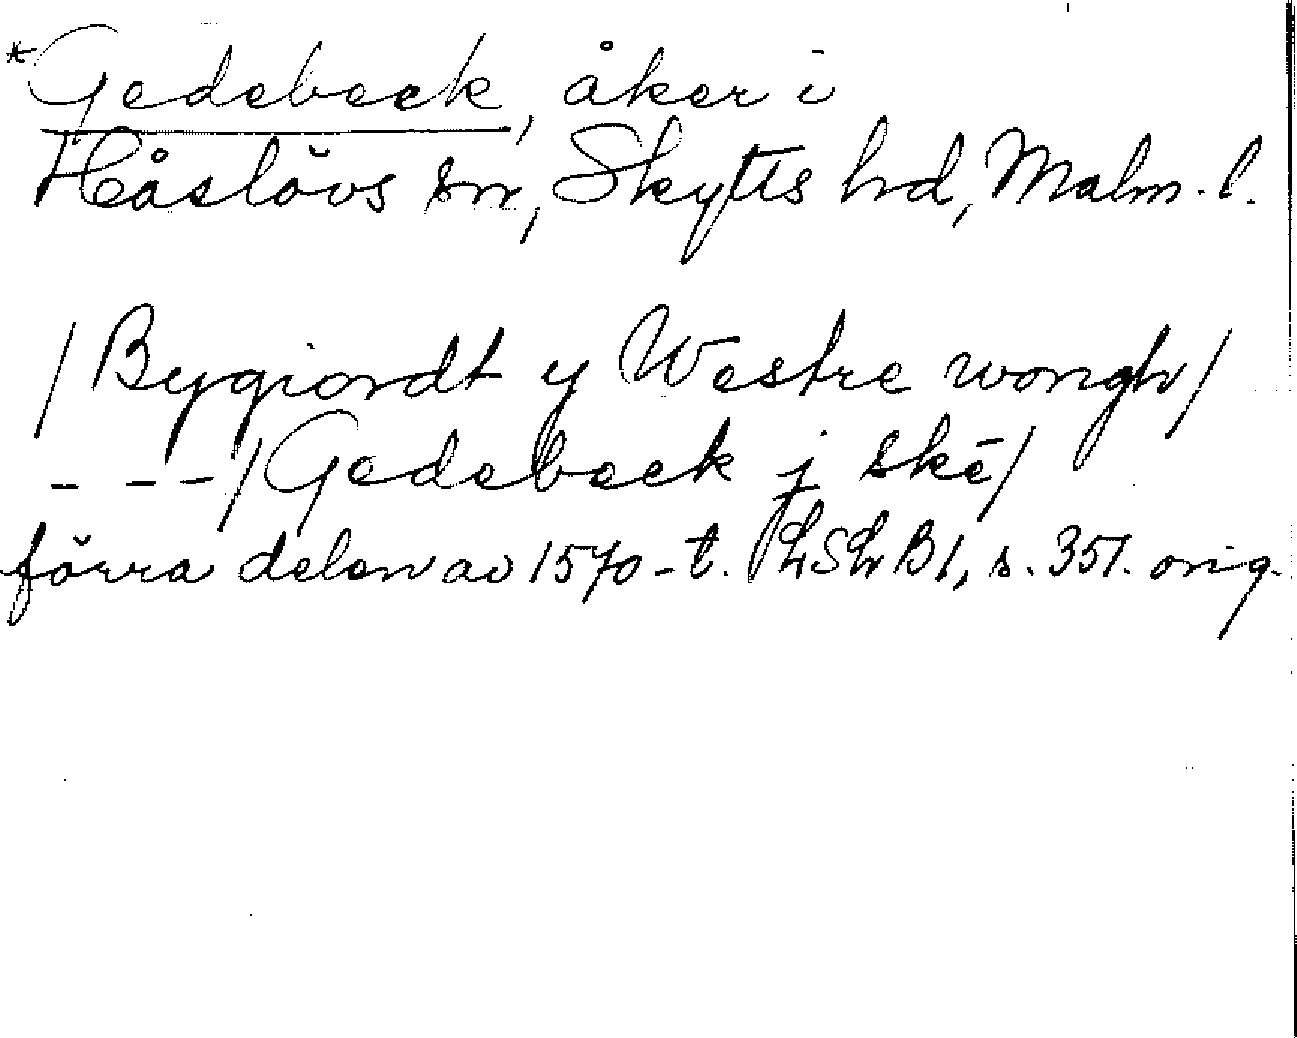 *Gedebeck, åker i
Håslövs sn, Skytts hd, Malm. l.
/Bygiordt y Westre wongh/
- - -/Gedebeck j skē/
förra delen av 1570-t. LShB1, s. 351. orig.